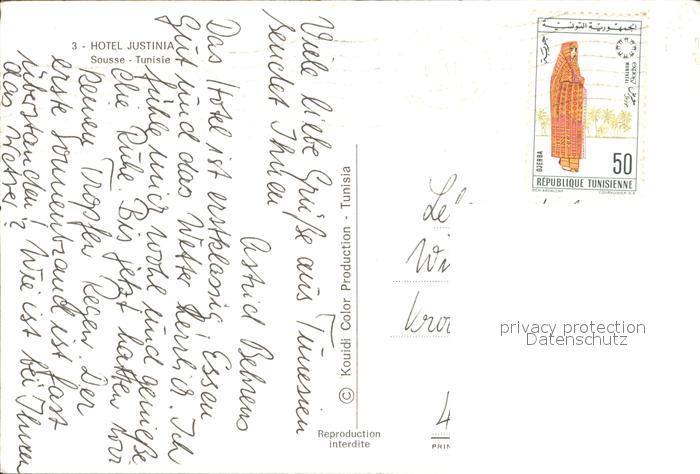 3 - HOTEL JUSTINIA
Sousse - Tunisie
Viele liebe Grüße aus Tunesien
sendet Ihnen
Astrid Behrens
Das Hotel ist erstklassig, Essen
gut und das Wetter herrlich. Ich
fühle mich wohl und genieße
die Ruhe. Bis jetzt hatten wir
keinen Tropfen Regen. Der
erste Sonnenbrand ist fast
überstanden! Wie ist bei Ihnen
das Wetter?
© Kouidi Color Production - Tunisia
Reproduction
interdite
الجمهورية التونسية
DJERBA
50
RÉPUBLIQUE TUNISIENNE
Wi
4
PRIN
privacy protection
Datenschutz